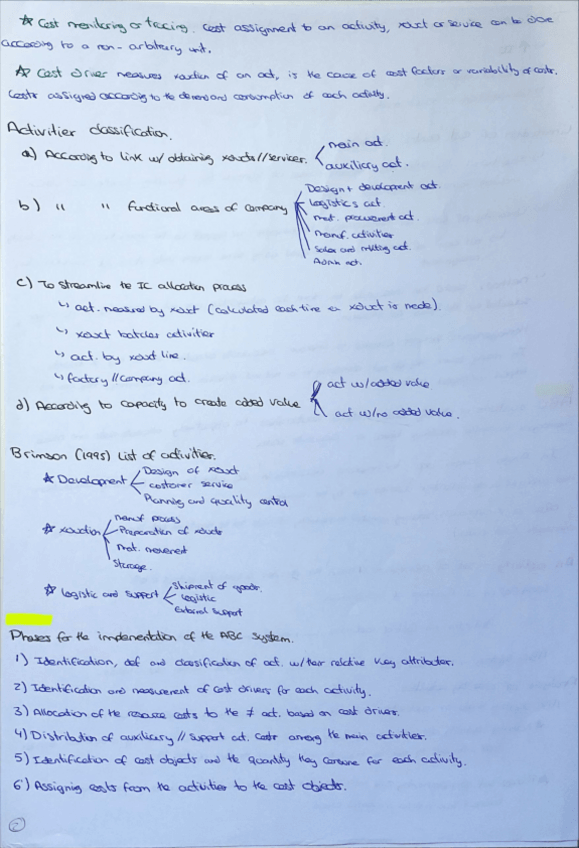 ☆ Cost monitoring or tracing. Cost assignment to an activity, xduct or service can be done
according to a non-arbitrary unit.
☆ Cost driver measures xduction of an act, is the cause of cost factors or variability of costs.
Costs assigned according to the demand and consumption of each activity.
Activities classification.
a) According to link w/ obtaining xducts//services.
main act.
auxiliary act.
b) " " functional areas of company
Design + development act.
Logistics act.
mat. procurement act.
manuf. activities
Sales and mkting act.
Admin act.
c) To streamline the IC allocation process
↳ act. measured by xduct (calculated each time a xduct is made).
↳ xduct batches activities
↳ act. by xduct line.
↳ factory//company act.
d) According to capacity to create added value
act w/added value
act w/no added value.
Brimson (1995) List of activities.
☆ Development
Design of xduct
costumer service
Planning and quality control
☆ xduction
manuf process
Preparation of xducts
mat. movement
Storage.
☆ Logistic and support
Shipment of goods.
Logistic
External support
Phases for the implementation of the ABC system.
1) Identification, def and classification of act. w/ their relative key attributes.
2) Identification and measurement of cost drivers for each activity.
3) Allocation of the resource costs to the ≠ act. based on cost drivers.
4) Distribution of auxiliary//support act. costs among the main activities.
5) Identification of cost objects and the quantity they consume for each activity.
6) Assigning costs from the activities to the cost objects.
2